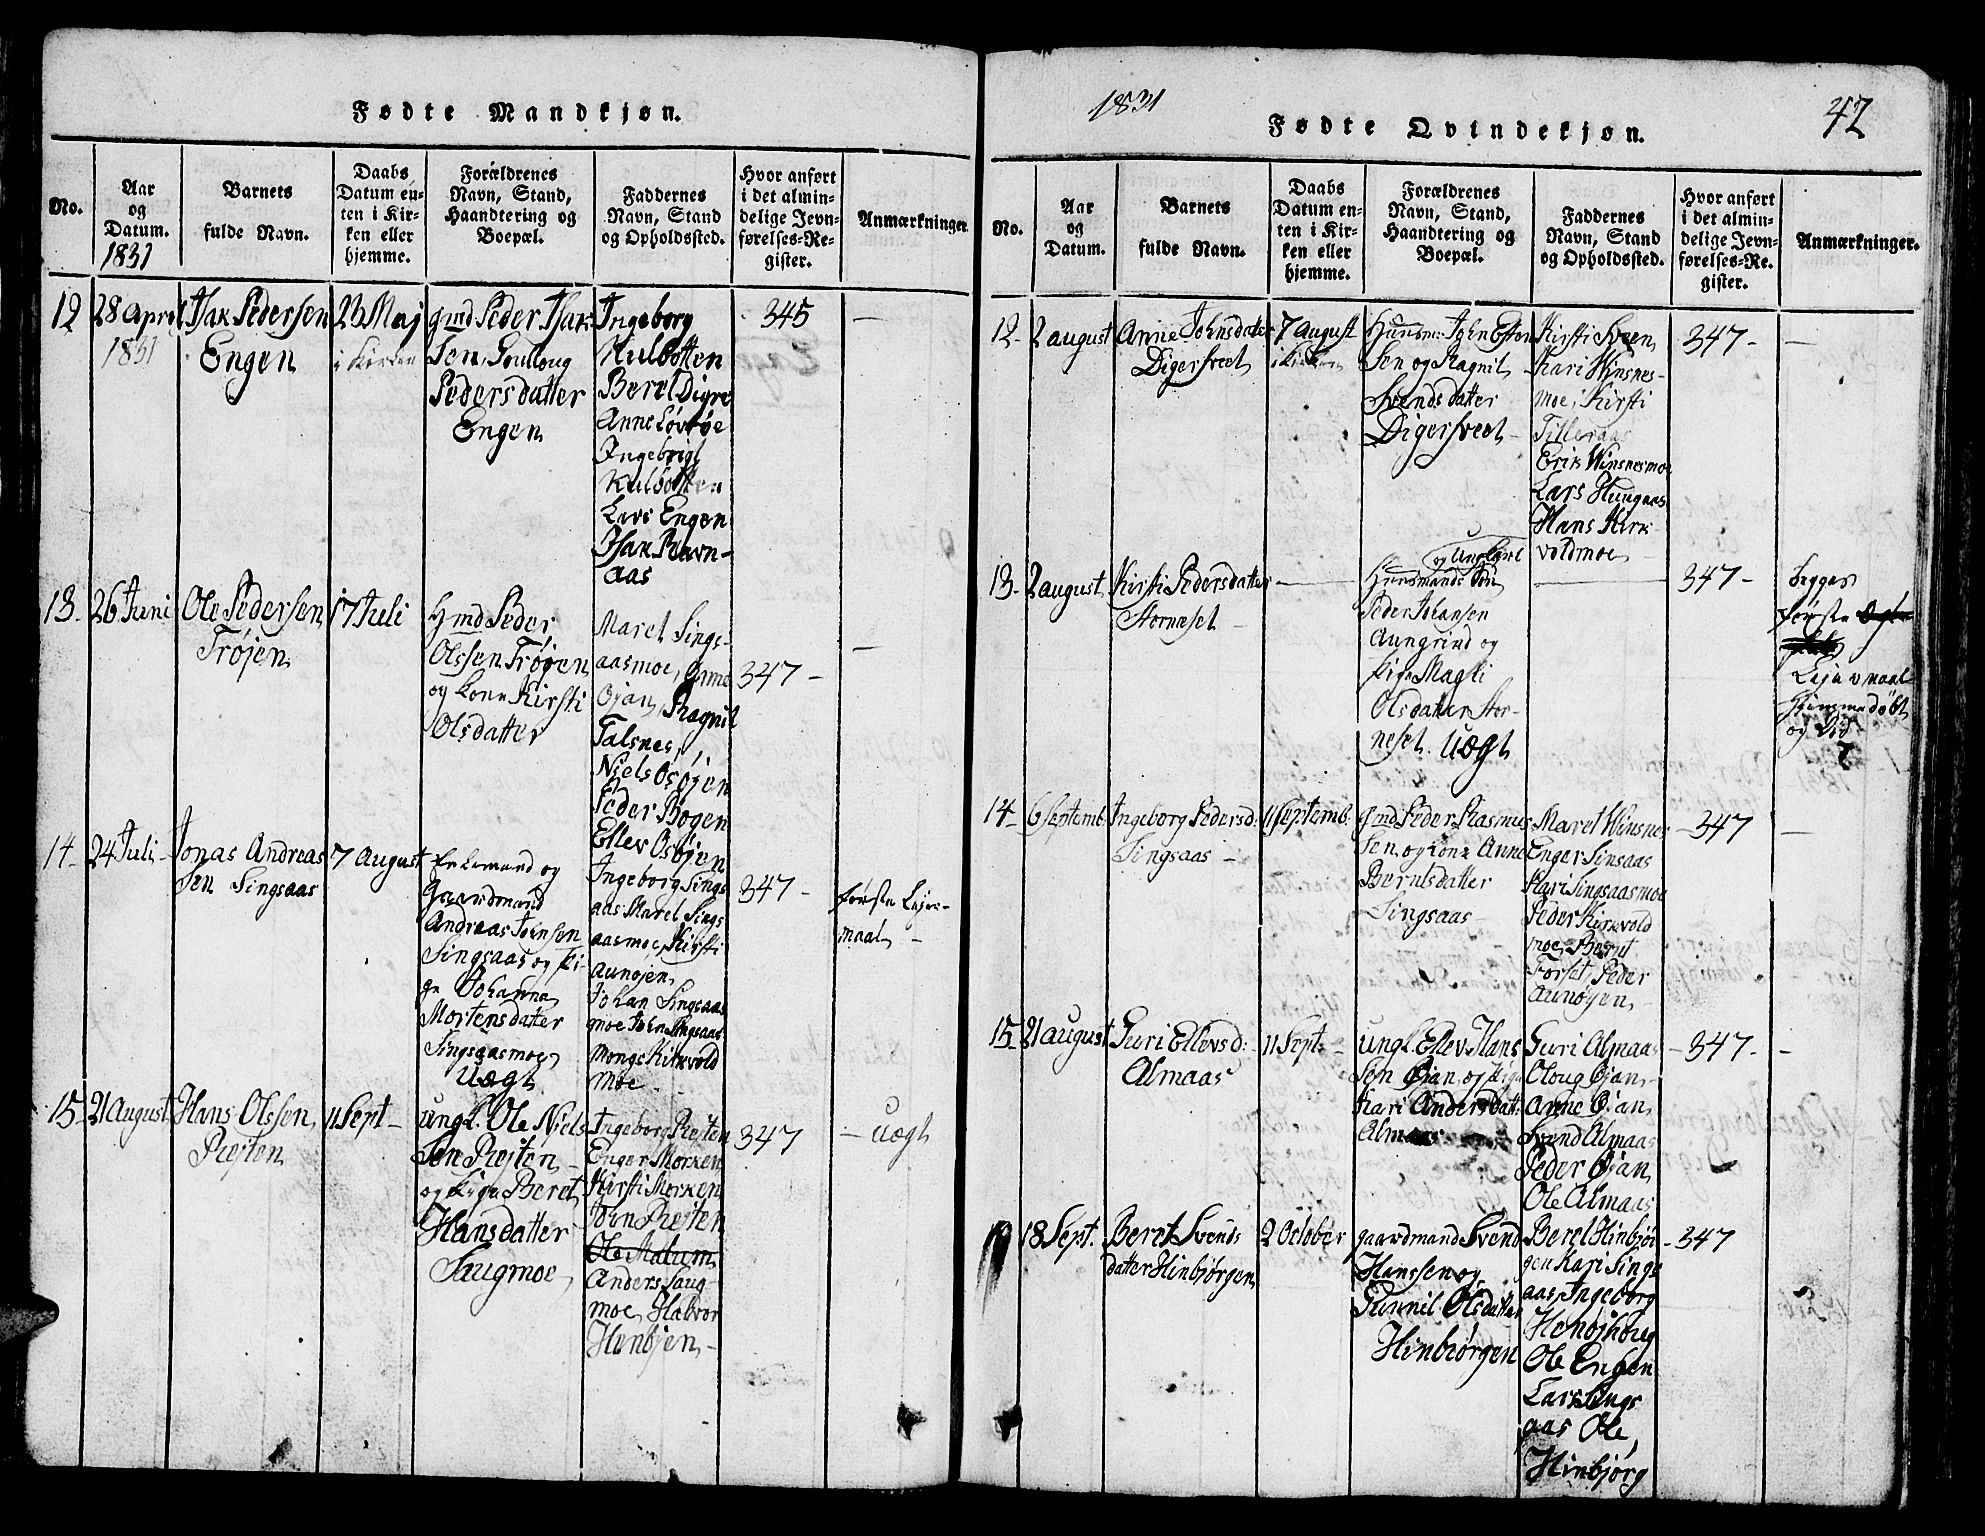 Fødte Mandkjøn.
No.
Aar
og
Datum.
1831
Barnets
fulde Navn.
Daabs
Datum en-
ten i Kir-
ken eller
hjemme.
Forældrenes
Navn, Stand,
Haandtering og
Boepæl.
Faddernes
Navn, Stand
og Opholdssted.
Hvor anført
i det almin-
delige Jevn-
førelses-Re-
gister.
Anmærkninger
12
28 April
1831
Isak Pedersen
Engen
23 Maj
i Kirken
gmd Peder Isak
Sen, Goulloug
Pedersdatter
Engen
Ingeborg
Kulbotten
Beret Digre
Anne Løvøe
Ingebrigt
Kulbotten
Lars Engen
Isak Ravn-
aas
345
—
13
26 Juni
Ole Pedersen
Trøjen
17 Juli
Hmd Peder
Olssen Trøjen
og kone Kirsti
Olsdatter
Maret Sings-
aasmoe, Anne
Øjan, Ragnil
Talsnes,
Niels Osøjen
Peder Bogen
Ellev Osøjen
347 —
—
14
24 Juli
Jonas Andreas
Sen Singsaas
7 August
Enkemand og
Gaardmand
Andreas Johnsen
Singsaas og Pi-
ge Johanna
Mortensdatter
Singsaasmoe
Uægt
Ingeborg Sings
aas Maret Sings
aasmoe, Kirsti
Aunøjen
Johan Singsaas
moe John Singsaas
Mongs Kirkvold
moe
347 —
første Lejer-
maal —
15
21 August
Hans Olssen
Rejten
11 Sept —
ungk. Ole Niels
Sen Rejten
og Pige Beret
Hansdatter
Haugmoe
Ingeborg Rejten
Enger Morken
Kirsti Morken
John Rejten
Ole Malum
Anders Haug-
moe, Halvor
Henbjen
347
— Uægt
1831
Fødte Qvindekjøn.
42
No.
Aar
og
Datum.
Barnets
fulde Navn.
Daabs
Datum en-
ten i Kir-
ken eller
hjemme.
Forældrenes
Navn, Stand,
Haandtering og
Boepæl.
Faddernes
Navn, Stand
og Opholdssted.
Hvor anført
i det almin-
delige Jevn-
førelses-Re-
gister.
Anmærkninger.
12
2 august
Anne Johnsdatter
Digersveet
7 August
i Kirken
Huusm: John Esten
Sen og Ragnil
Svendsdatter
Digersveet
Kirsti Sveen
Kari Winsnes-
moe, Kirsti
Tilleraas
Erik Winsnesmoe
Lars Haugaas
Hans Kirk-
voldmoe
347 —
—
13
2 august
Kirsti Pedersdatter
Storneset
—
og Ungkarl
Huusmands Søn
Peder Johansen
Aungrind og
Pige Magli
Olsdatter Stor-
neset Uægt
—
347 —
begges
første
Lejermaal
hjemmedøbt
og Død
14
6 Septemb.
Ingeborg Pedersd:
Singsaas —
11 Septemb.
gmd Peder Rasmus
Sen og kone Anne
Berntsdatter
Singsaas —
Maret Winsnes
Enger Sinsaas
Kari Singsaasmoe
Peder Kirkvold
moe, Bernt
Forset, Peder
Aunøyen
347
—
15
21 August
Guri Ellevsd:
Almaas
11 Sept:
ungk. Ellev Hans
Sen Øian og Pige
Kari Andersdatt:
Almaas
Guri Almaas
Oloug Øjan
Anne Øjan
Svend Almaas
Peder Øjan
Ole Almaas
347 —
—
18 Sept.
Beret Svends
datter Hinbjørgen
2 October
gaardmand Svend
Hanssen og
Gunnil Olsdatter
Hinbiørgen
Beret Hinbjør
gen Kari Sings
aas, Ingeborg
Henøjhoug
Ole Engen
Lars Sings
aas Ole
Hinbjørg
347